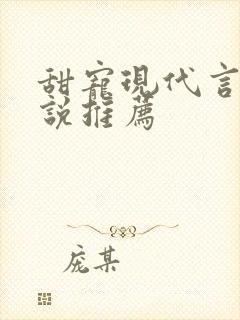 甜寵現代言
說推薦
庞某